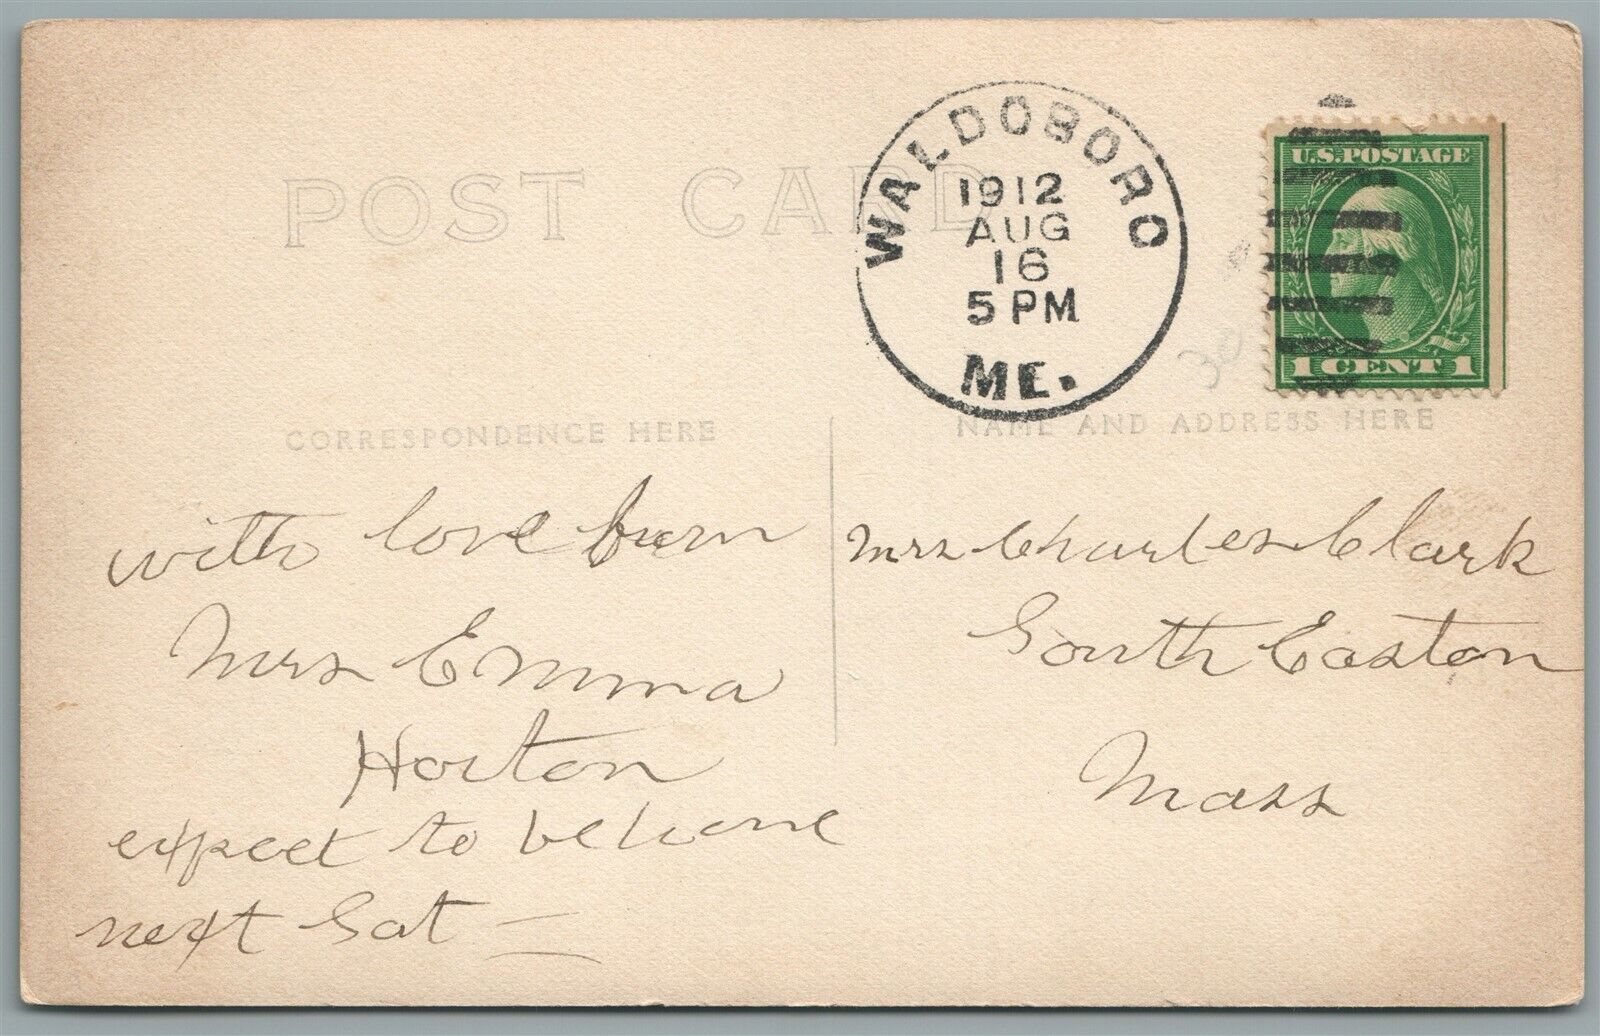 POST CARD
WALDOBORO
1912
AUG
16
5 PM
ME.
U.S. POSTAGE
1 CENT 1
30
CORRESPONDENCE HERE
NAME AND ADDRESS HERE
with love from
Mrs Emma
Horton
expect to be home
next Sat
Mrs Charles Clark
South Easton
Mass